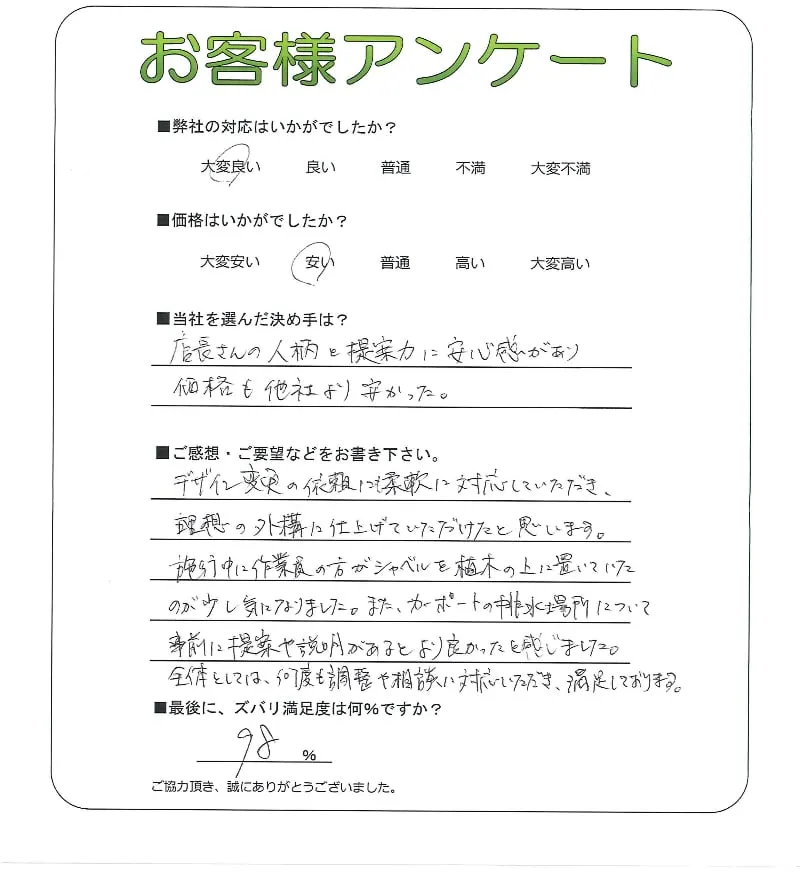 お客様アンケート
■弊社の対応はいかがでしたか？
大変良い 良い 普通 不満 大変不満
■価格はいかがでしたか？
大変安い 安い 普通 高い 大変高い
■当社を選んだ決め手は？
店長さんの人柄と提案力に安心感があり
価格も他社より安かった。
■ご感想・ご要望などをお書き下さい。
デザイン変更の依頼にも柔軟に対応していただき、
理想の外構に仕上げていただけたと思います。
施行中に作業員の方がシャベルを植木の上に置いていた
のが少し気になりました。また、カーポートの排水場所について
事前に提案や説明があるとより良かったと感じました。
全体としては、何度も調整や相談に対応いただき、満足しております。
■最後に、ズバリ満足度は何％ですか？
98 ％
ご協力頂き、誠にありがとうございました。